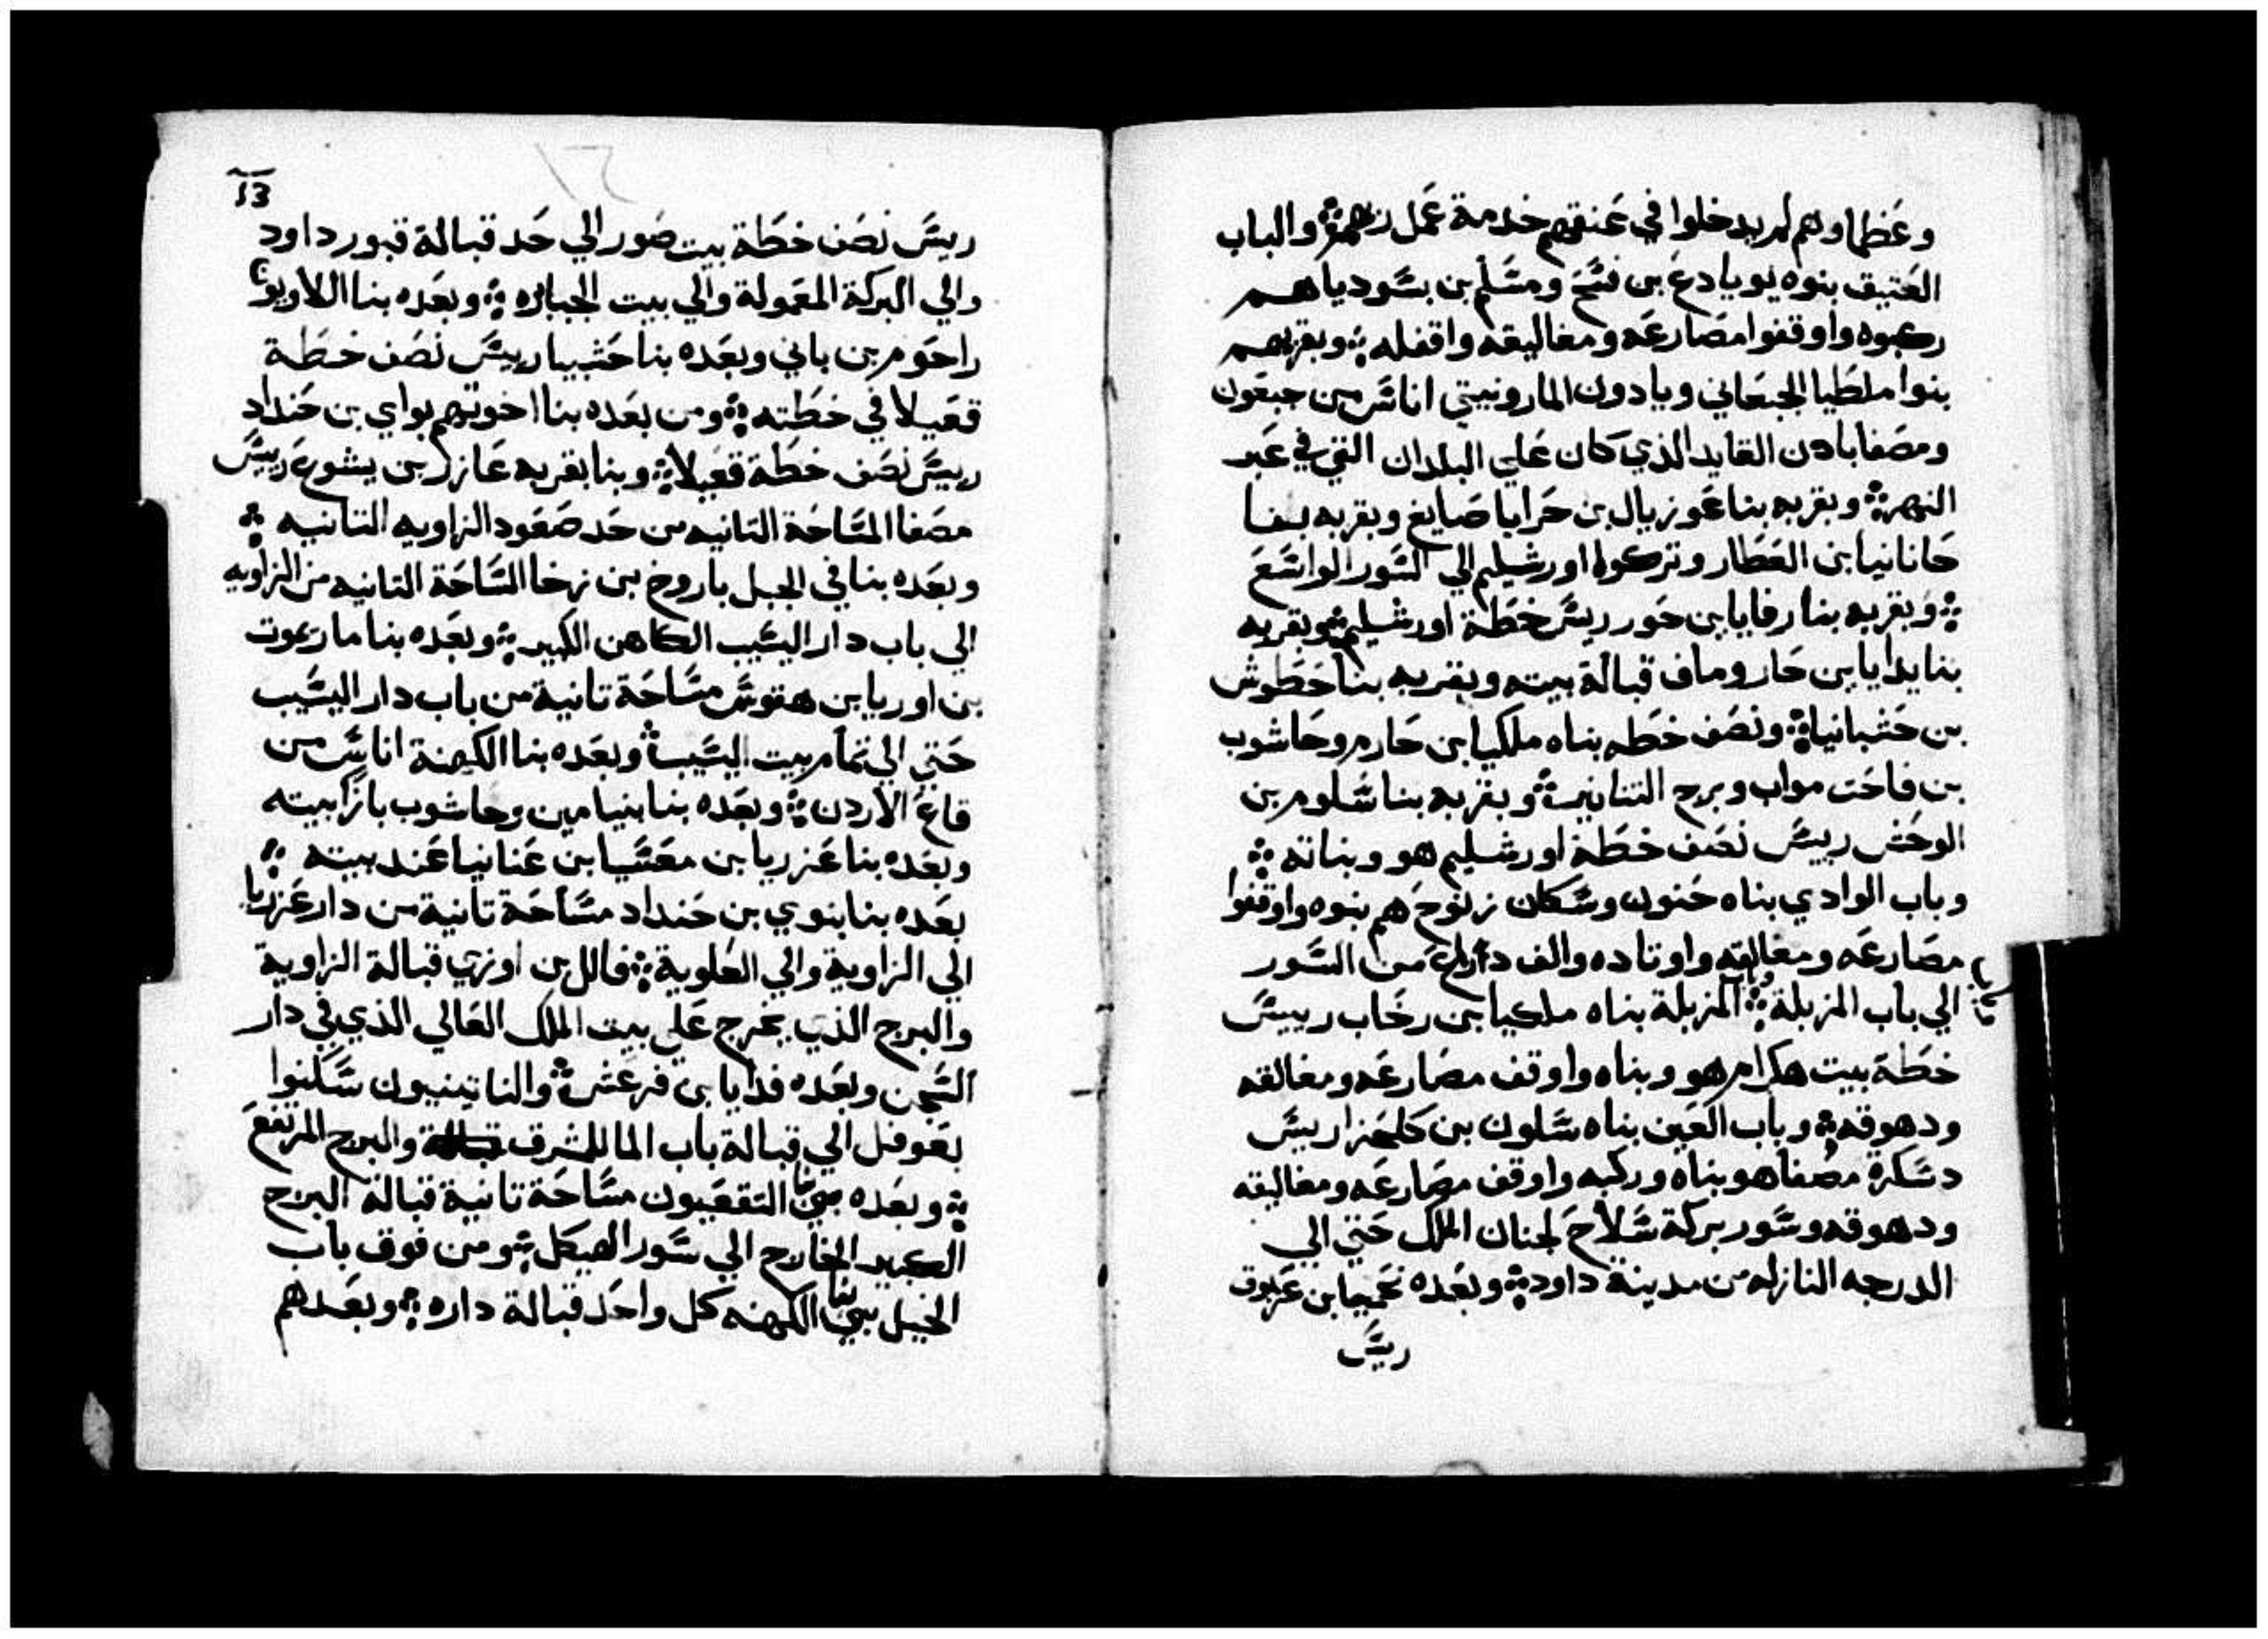 وعظماوهم لم يدخلوا في عنقهم خدمة عمل ربهم ۞ والباب
العتيق بنوه يوياداع بن فسح ومسلم بن بسوديا هم
ركبوه واوقفوا مصارعه ومغاليقه واقفله ۞ وبقربهم
بنوا ملطيا الجبعاني ويادون المارونيتي اناس من جبعون
ومصفا بادن القايد الذي كان علي البلدان التي في عبر
النهر ۞ وبقربه بنا عوزيال بن حرايا صايغ وبقربه بنا
حانانيا بن العطار وتركوا اورشليم الي السور الواسع
۞ وبقربه بنا رفايا بن حور ريس خطة اورشليم ۞ وبقربه
بنا يدايا بن حاروماف قبالة بيته وبقربه بنا حطوش
بن حشبانيا ۞ ونصف خطه بناه ملكيا بن حارم وحاشوب
بن فاحت مواب وبرج التنانير ۞ وبقربه بنا سلوم بن
الوحش ريس نصف خطة اورشليم هو وبناته ۞
وباب الوادي بناه حنون وسكان زنوح هم بنوه واوقفوا
مصارعه ومغالقه واوتاده والف دراع من السور
الي باب المزبلة ۞ وباب المزبلة بناه ملكيا بن رخاب رييس
خطة بيت هكرام هو وبناه واوقف مصارعه ومغالقه
ودهوقه ۞ وباب العين بناه سلون بن كلحزا ريس
دسكرة مصفا هو بناه وركبه واوقف مصارعه ومغاليقه
ودهوقه وسور بركة سلاح لجنان الملك حتي الي
الدرجه النازله من مدينة داود ۞ وبعده نحميا بن عزبوق
ريس
13
ريس نصف خطة بيت صور الي حد قبالة قبور داود
والي البركة المعمولة والي بيت الجبابره ۞ وبعده بنا اللاويون
راحوم بن باني وبعده بنا حشبيا رييس نصف خطة
قعيلا في خطته ۞ ومن بعده بنا اخوتهم بواي بن حنداد
رييس نصف خطة قعيلا ۞ وبنا بقربه عازر بن يشوع رييس
مصفا المساحة التانيه من حد صعود الزاويه التانيه ۞
وبعده بنا في الجبل باروخ بن زخا الساحة التانيه من الزاويه
الي باب دار اليسيب الكاهن الكبير ۞ وبعده بنا ماريموت
بن اوريا بن هقوس مساحة تانية من باب دار اليسيب
حتي الي تمام بيت اليسيب ۞ وبعده بنا الكهنة اناس من
قاع الاردن ۞ وبعده بنا بنيامين وحاشوب بازا بيته
وبعده بنا عزريا بن معسيا بن عنانيا عند بيته ۞
بعده بنا بنوي بن حنداد مساحة تانية من دار عزريا
الي الزاوية والي العلوية ۞ فالل بن اوزي قبالة الزاوية
والبرج الذي يخرج علي بيت الملك العالي الذي في دار
السجن وبعده فدايا بن فرعش ۞ والناتينيون سكنوا
بعوفل الي قبالة باب الما للشرق والبرج المرتفع
۞ وبعده بنا التقعيون مساحة تانية قبالة البرج
الكبير الخارج الي سور الهيكل ۞ ومن فوق باب
الخيل بنا الكهنه كل واحد قبالة داره ۞ وبعدهم